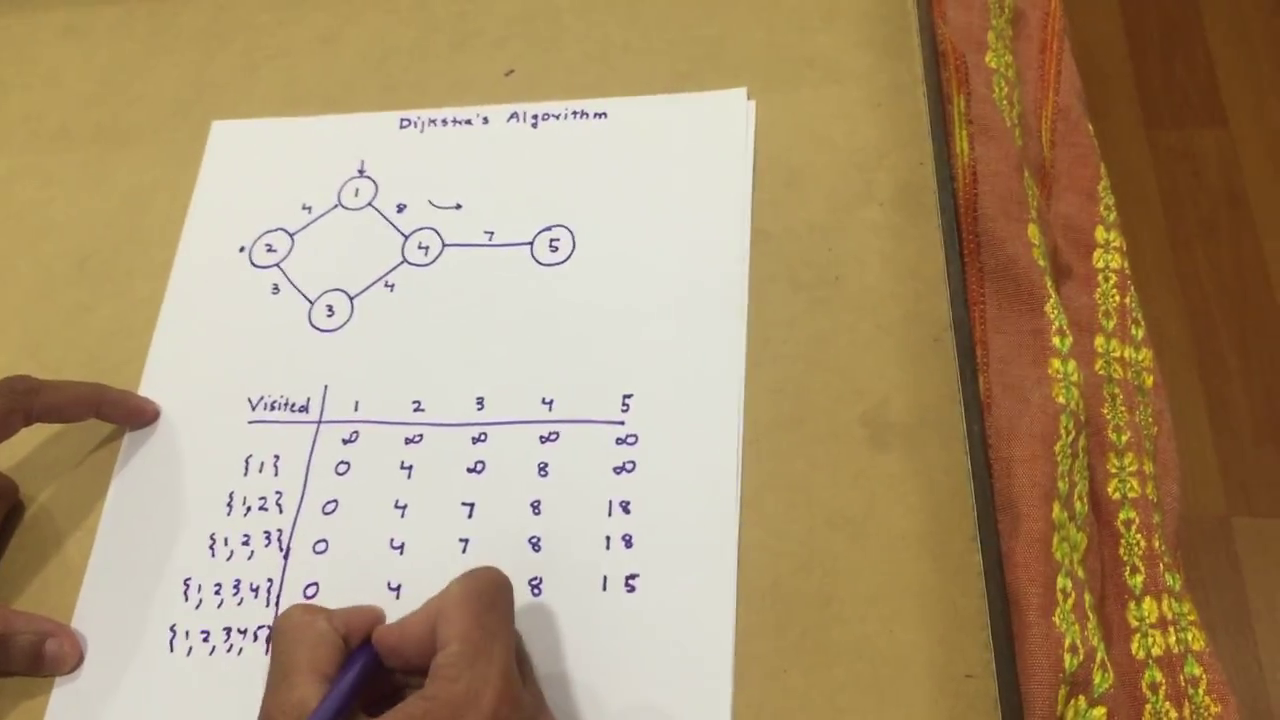 Dijkstra's Algorithm
1
4 8
2 4 7 5
3 4
3
Visited 1 2 3 4 5
∞ ∞ ∞ ∞ ∞
{1} 0 4 ∞ 8 ∞
{1,2} 0 4 7 8 18
{1,2,3} 0 4 7 8 18
{1,2,3,4} 0 4 8 15
{1,2,3,4,5}